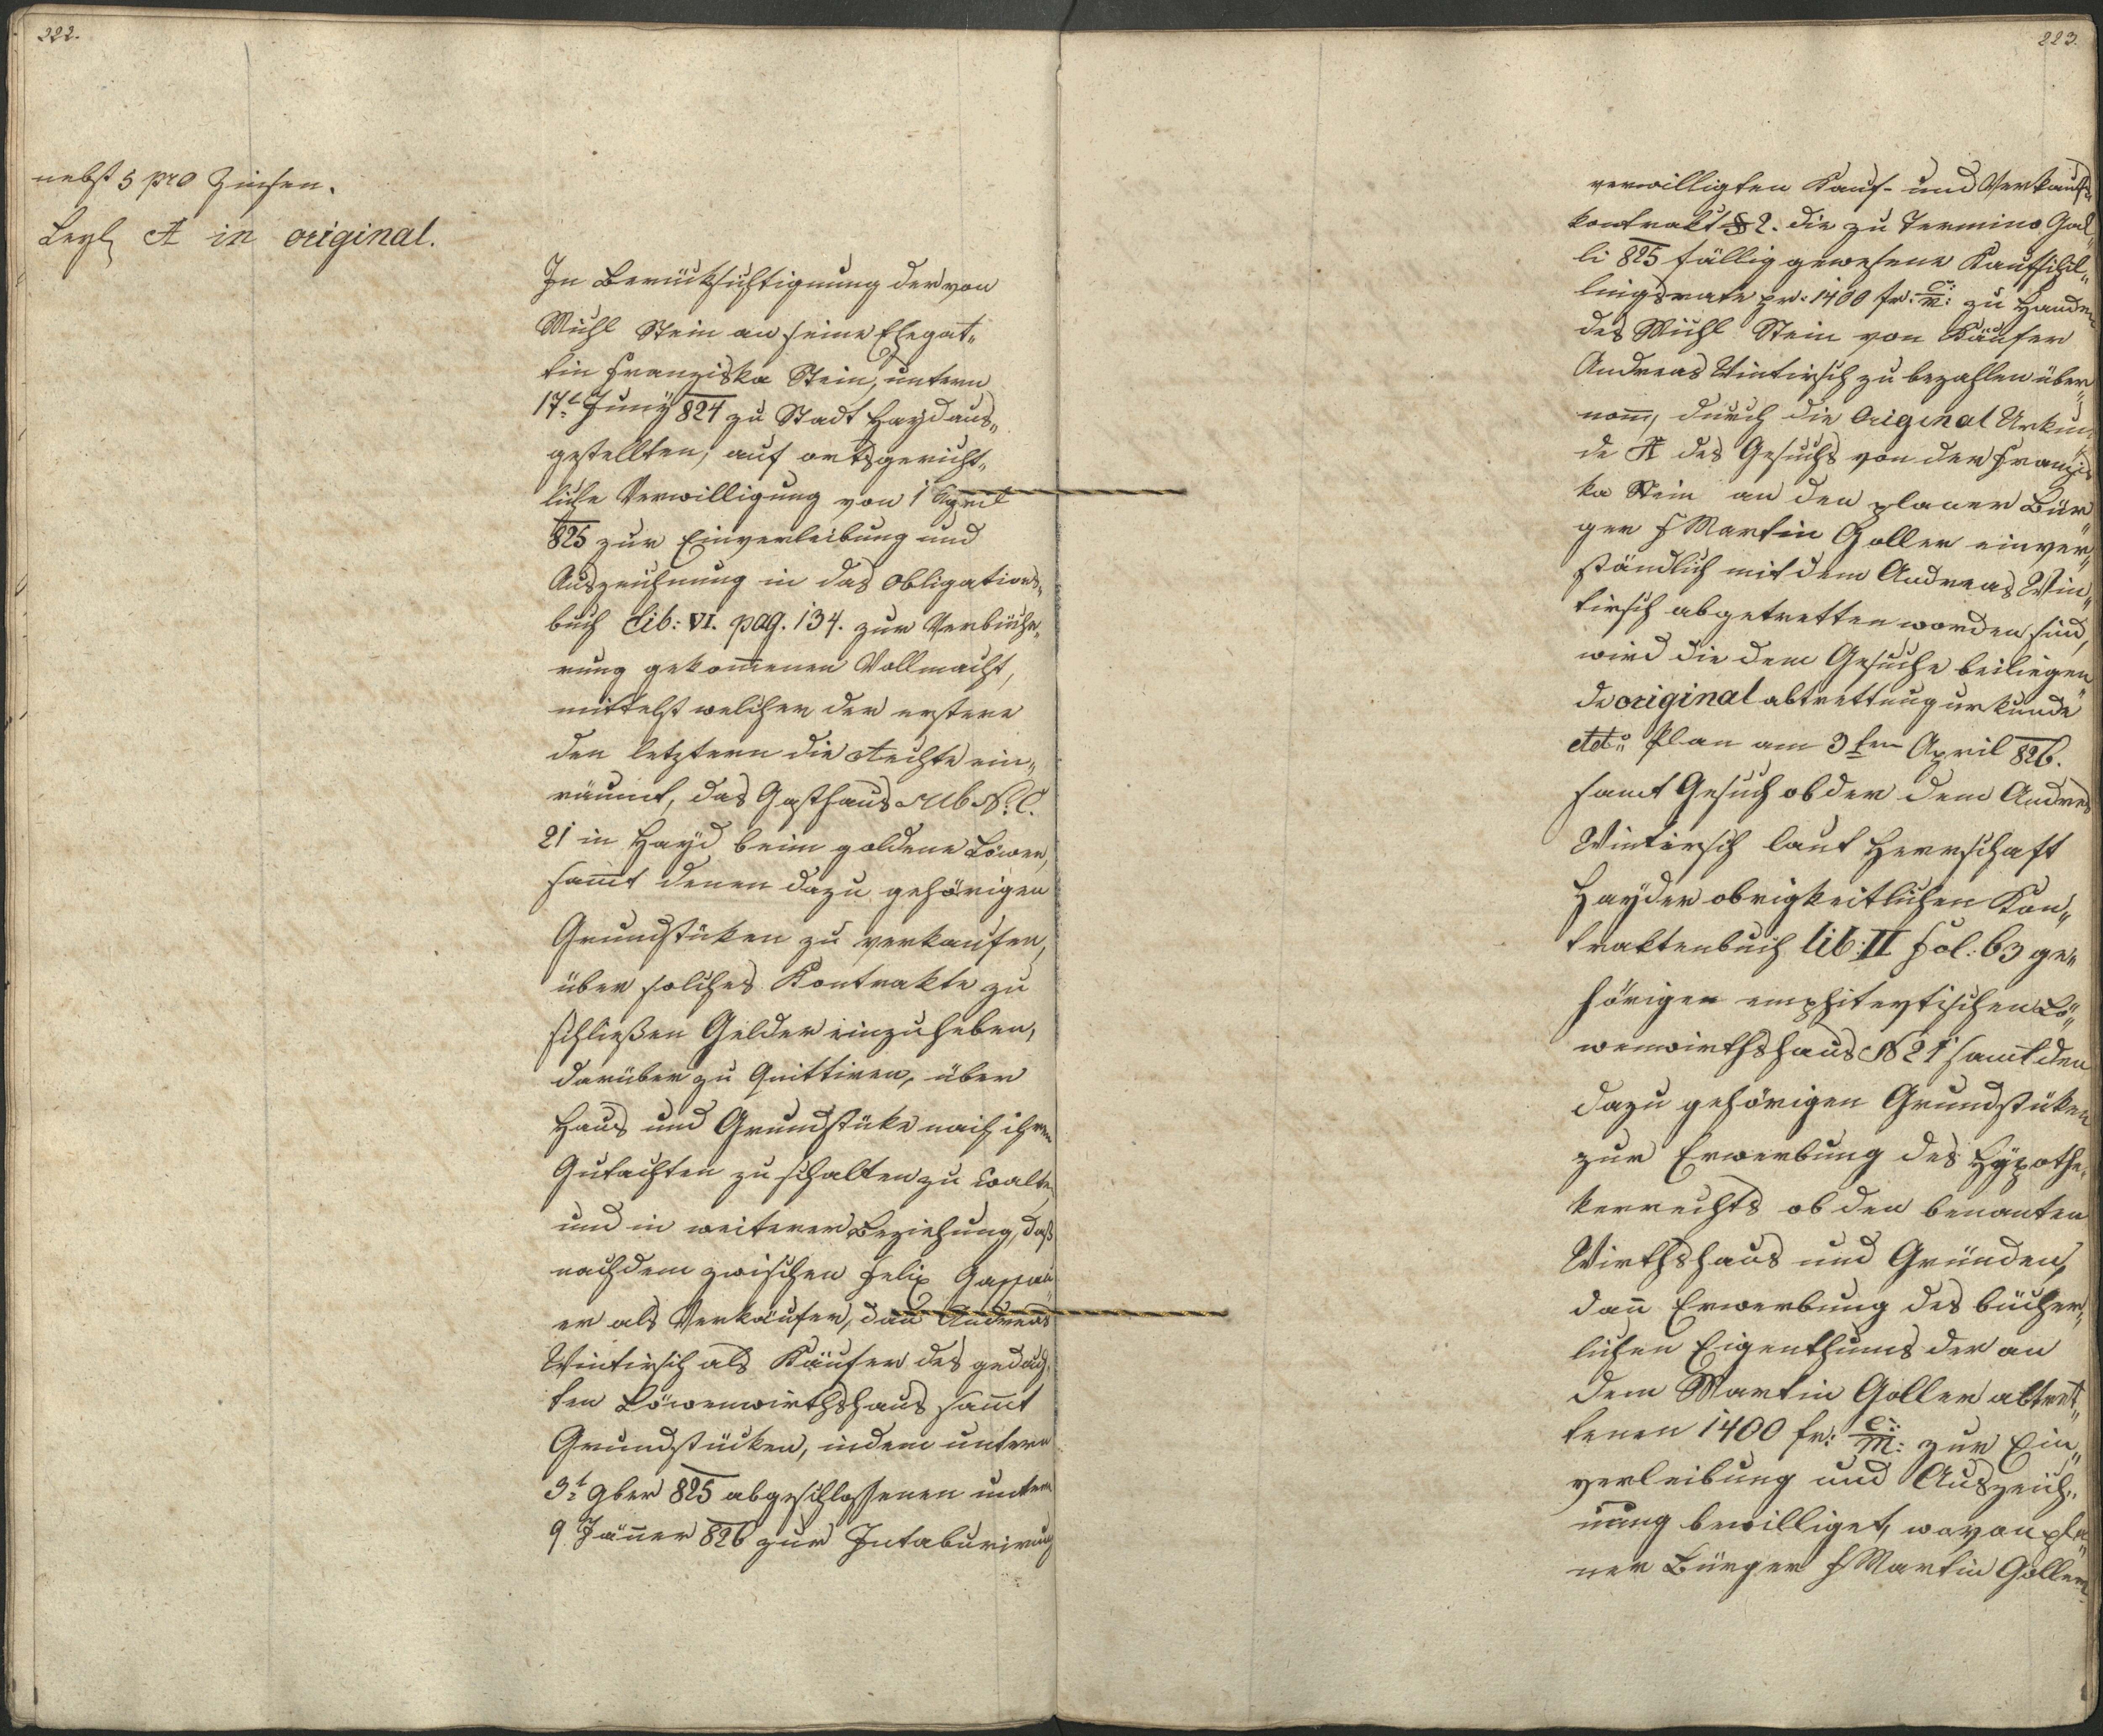 222.
nebst 5 pro Zinsen.
Beyl A in original.
In Berücksichtigung der von
Michl Stein an seine Ehegat„
tin Franziska Stein, unterm
17t Juny 824 zu Stadt Hayd aus„
gestellten, auf ortsgericht„
liche Verwilligung von 1 April
825 zur Einverleibung und
Auszeichnung in das Obligations„
buch Lib: VI. pag. 134. zur Verbüche„
rung gekommenen Vollmacht,
mittelst welcher der erstere
den letztern die Rechte ein„
räumt, das Gasthaus sub N. C.
21 in Hayd beim goldene Löwen,
sammt denen dazu gehörigen
Grundstüken zu verkaufen,
über solches Kontrakte zu
schließen Gelder einzuheben,
darüber zu Quittiren, über
Haus und Grundstüke nach ihrem
Gutachten zu schalten zu walten
und in weiterer Beziehung, daß
nachdem zwischen Felix Gassau„
er als Verkäufer, dann Andreas
Wintirsch als Käufer des gedach„
ten Löwenwirthshaus sammt
Grundstücken, indem unterm
3t 9ber 825 abgeschlossenen unterm
9 Jänner 826 zur Intabulirung
223.
verwilligten Kauf- und Verkaufs„
kontrakt § 2. die zu Termino Gal„
li 825 fällig gewesene Kaufschil„
lingsrate pr. 1400 fr: C: M: zu Handen
des Michl Stein von Käufer
Andreas Wintirsch zu bezahlen über„
nom̄, durch die Original Urkun„
de A des Gesuchs von der Franzis
ka Stein an den planer Bür„
ger H Martin Goller einver„
ständlich mit dem Andreas Win„
tirsch abgetretten worden sind,
wird die dem Gesuche beiliegen„
de original abtrettungurkunde
ddto Plan am 3ten April 826.
samt Gesuch ob der dem Andreas
Wintirsch laut Herrschaft
Hayder obrigkeitlichen Kon„
traktenbuch lib: II Fol: 63 ge„
hörigen emphiteytischen Lö„
wenwirthshaus N 21 samt den
dazu gehörigen Grundstüken
zur Erwerbung des Hypothe„
kerrechts ob den benanten
Wirthshaus und Gründen,
dann Erwerbung des bücher„
lichen Eigenthums der an
dem Martin Goller abtret„
tenen 1400 fr: C: M: zur Ein„
verleibung und Auszeich„
nung bewilliget, wovon pla„
ner Bürger H Martin Goller